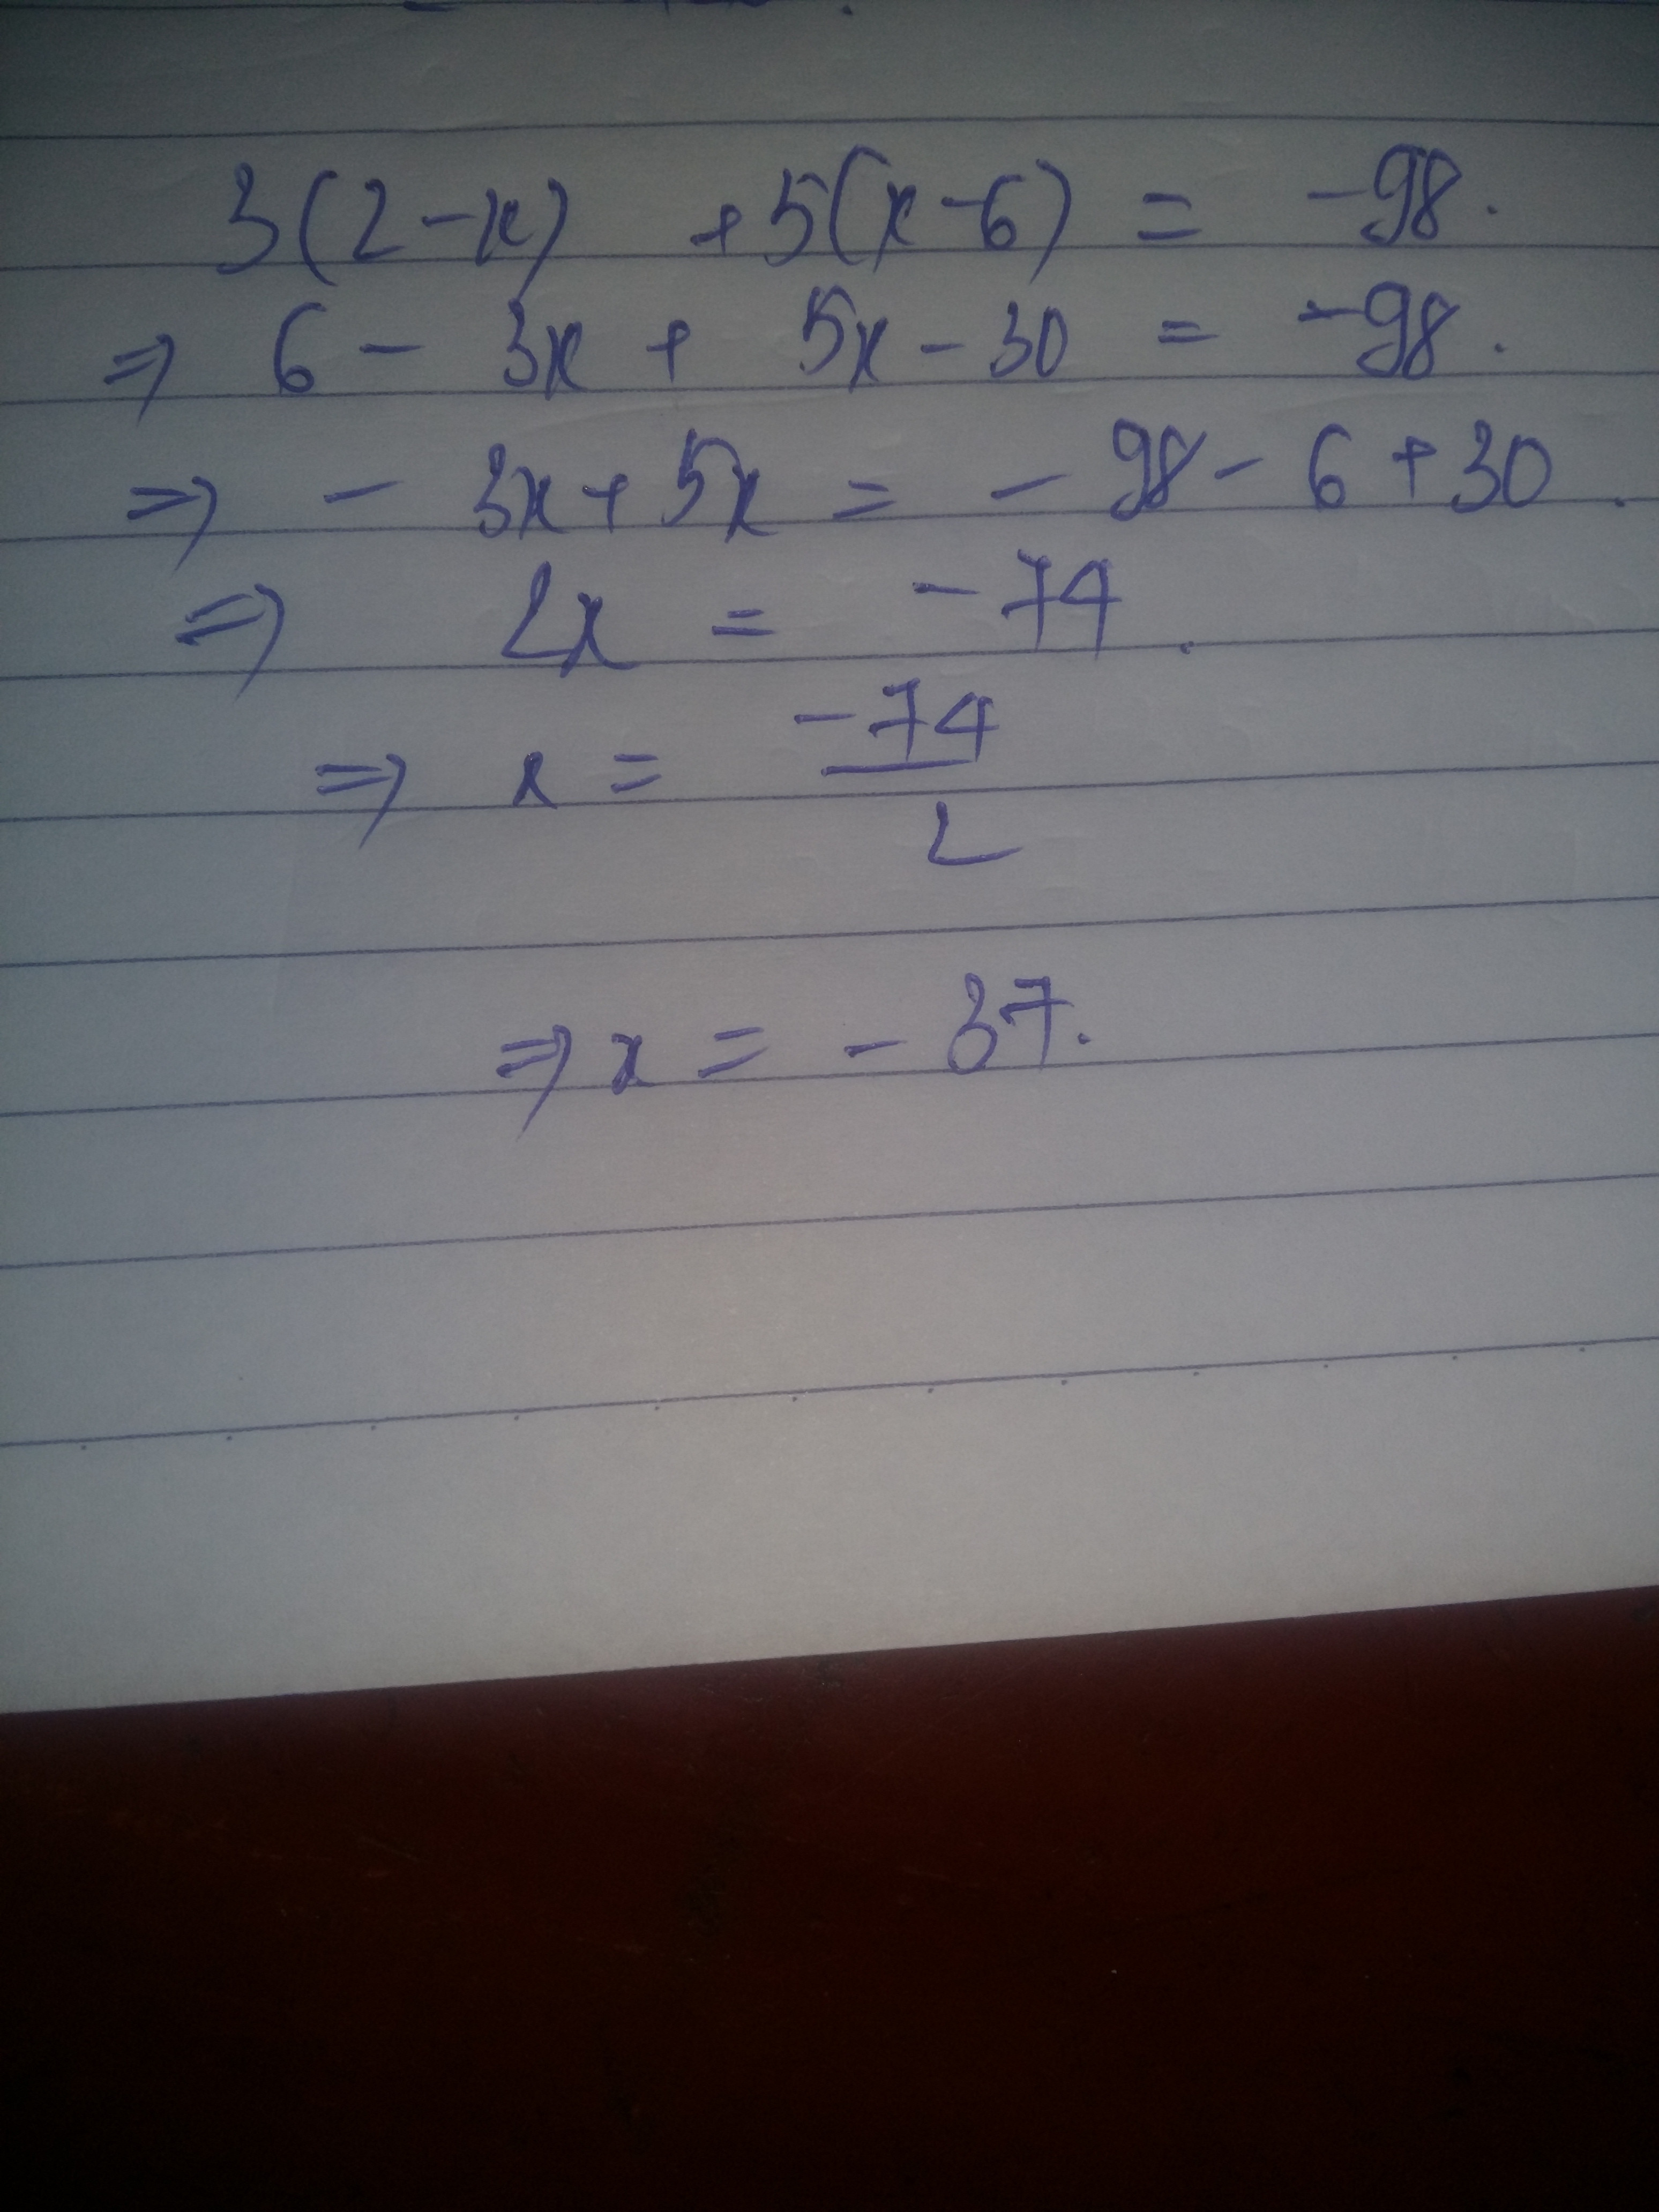 3(2-x) +5(x-6) = -98.
⇒ 6 - 3x + 5x - 30 = -98.
⇒ - 3x + 5x = - 98 - 6 + 30.
⇒ 2x = -74.
⇒ x = -74/2
⇒ x = - 37.